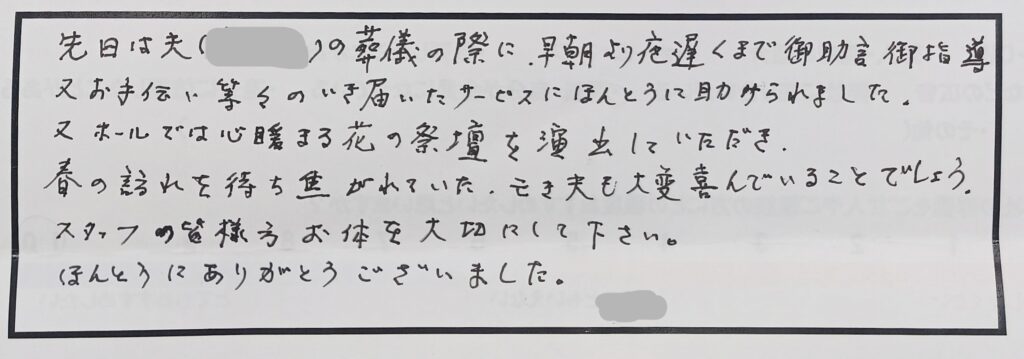 先日は夫( )の葬儀の際に、早朝より夜遅くまで御助言御指導
又お手伝い等々のいき届いたサービスにほんとうに助けられました。
又ホールでは心暖まる花の祭壇を演出していただき、
春の訪れを待ち焦がれていた、亡き夫も大変喜んでいることでしょう。
スタッフの皆様方お体を大切にして下さい。
ほんとうにありがとうございました。